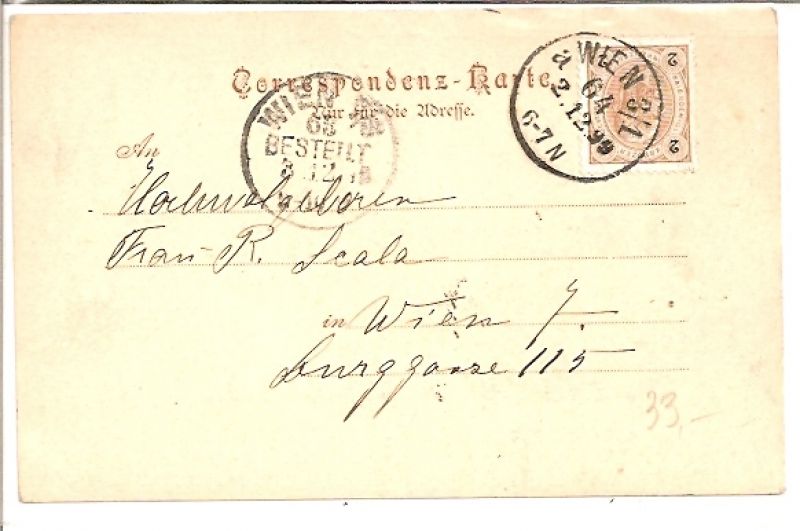 Correspondenz-Karte
Nur für die Adresse.
2
2
WIEN 3/1
a 64
2.12.99
6-7N
WIEN
63
BESTELLT
3 12
An
Hochwolgeboren
Frau R. Scala
in Wien 7.
Burggasse 115
33,-